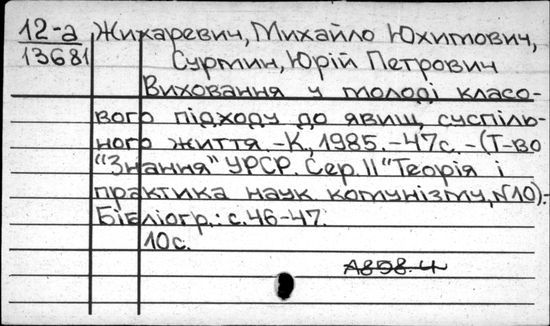 12-а Жихаревич, Михайло Юхимович,
13681 Сурмин, Юрій Петрович
Виховання у молоді класо-
вого підходу до явищ суспіль-
ного життя.-К., 1985.-47с.-(Т-во
"Знання" УРСР. Сер. II "Теорія і
практика наук. комунізму, №10).-
Бібліогр.: с.46-47.
10с.